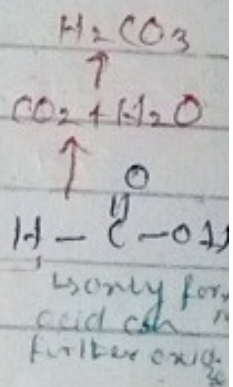 H2CO3
↑
CO2 + H2O
↑
O
||
H - C - OH
↳ only for
acid can
further oxid